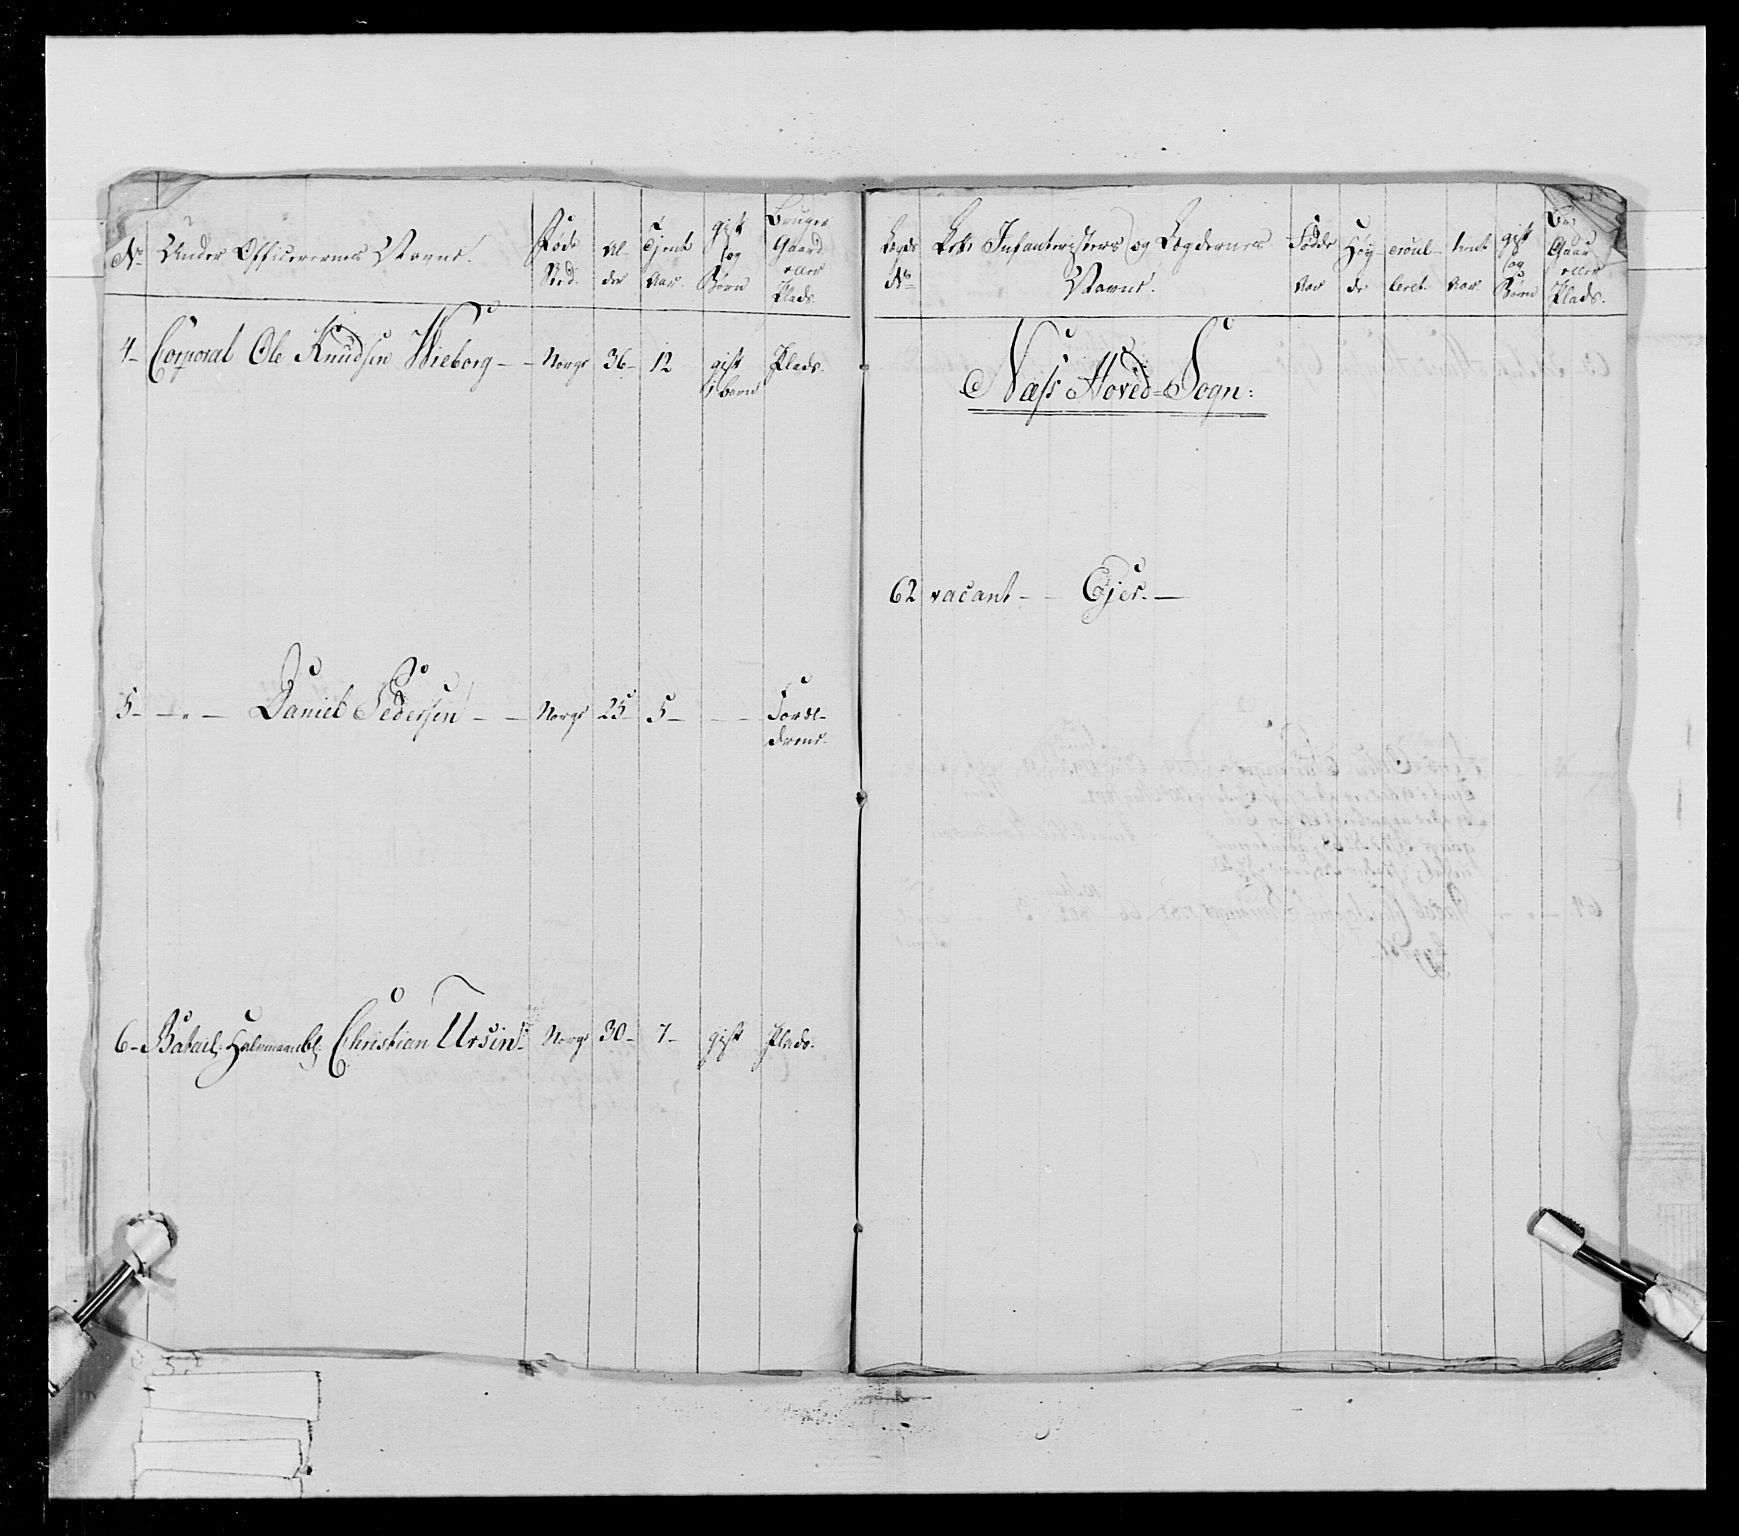 No. Under Officerernes Navne. Føde Sted. Al- der Tjent Aar. gift og Børn Bruger Gaard eller Plads.
4- Corporal Ole Knudsen Wieborg - - Norge 36- 12 gift Plads.
1 barn
5- - " - Daniel Pedersen - - Norge 25- 5- - - Foræl-
drene.
6- Batail: Halvmaanbl: Christian Ursin- Norge 30- 7- gift Plads.
Lægds No. Infanteristers og Lægdernes Navne. Fødde Aar Høy- de tient Aar gift og Børn Gaar eller Plads.
Næss Hoved-Sogn:
62 vacant - - Ejer. -